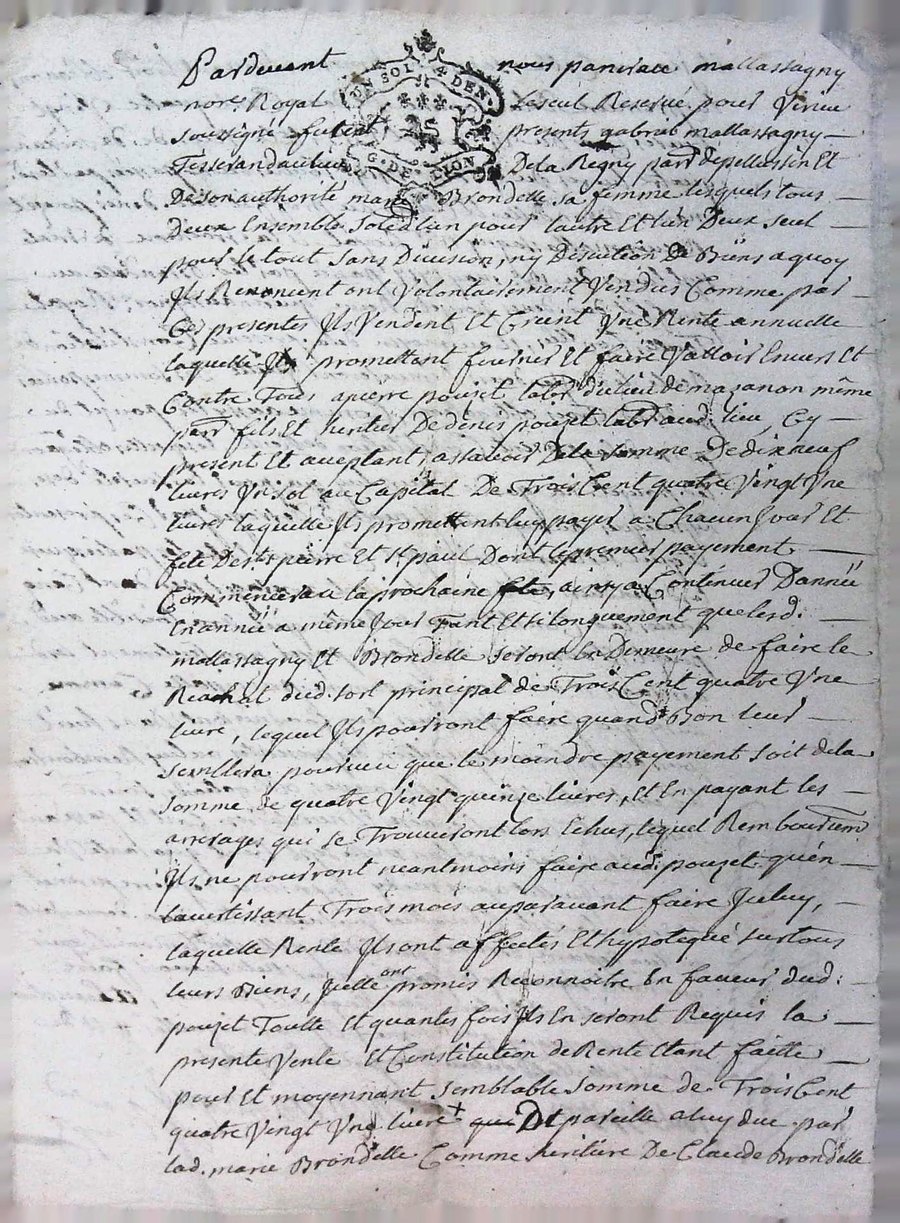 Pardevant nous pancrace mallassagny
nore Royal Laseul Reservé pour Virieu
soussigné furent presents gabriel mallassagny
Tisserand au lieu De la Regny parr de pellussin Et
De son authorité marie Brondelle sa femme lesquels tous
deux Ensemble Solid l'un pour l'autre Et l'un Deux seul
pour le tout sans Division, ny Discution De Biens a quoy
Ils Renoncent ont Volontairement Vendus Comme par
Ces presentes Ils Vendent Et Creent Une Rente annuelle
laquelle Ils promettent fournir Et faire Valloir Envers Et
Contre Tous a pierre poujet labr du lieu de mazanon même
parr fils Et heritier De denis poujet labr aud. lieu, Cy
present Et acceptant, a scavoir De la somme De dix neuf
livres Un sol au Capital De Trois Cent quatre Vingt Une
livres laquelle Ils promettent luy payer a Chacun Jour Et
fete De st pierre Et st paul Dont le premier payement
Commencera a la prochaine fete, ainsy a Continuer D'année
En année a même Jour Tant Et si longuement que lesd.
mallassagny Et Brondelle seront En Demeure de faire le
Reachat dud. sort principal de Trois Cent quatre Une
livre, lequel Ils pourront faire quand Bon leur
semllera pourveu que le moindre payement soit de la
somme de quatre Vingt quinze livres, Et En payant les
arrerages qui se Trouveront lors Echus, lequel Remboursemt
Ils ne pourront neantmoins faire aud. poujet qu'en
lavertissant Trois mois auparavant faire Iceluy,
laquelle Rente Ils ont affectés Et hypotequé sur tous
leurs Biens, Icelle ont promis Reconnoitre En faveur dud:
poujet Toutte Et quantes fois Ils En seront Requis la
presente Vente Et Constitution de Rente Etant faitte
pour Et moyennant semblable somme de Trois Cent
quatre Vingt Une livre + que De pareille a luy due par
lad. marie Brondelle Comme heritiere De Claude Brondelle
UN SOL 4 DEN.
G. DE LION